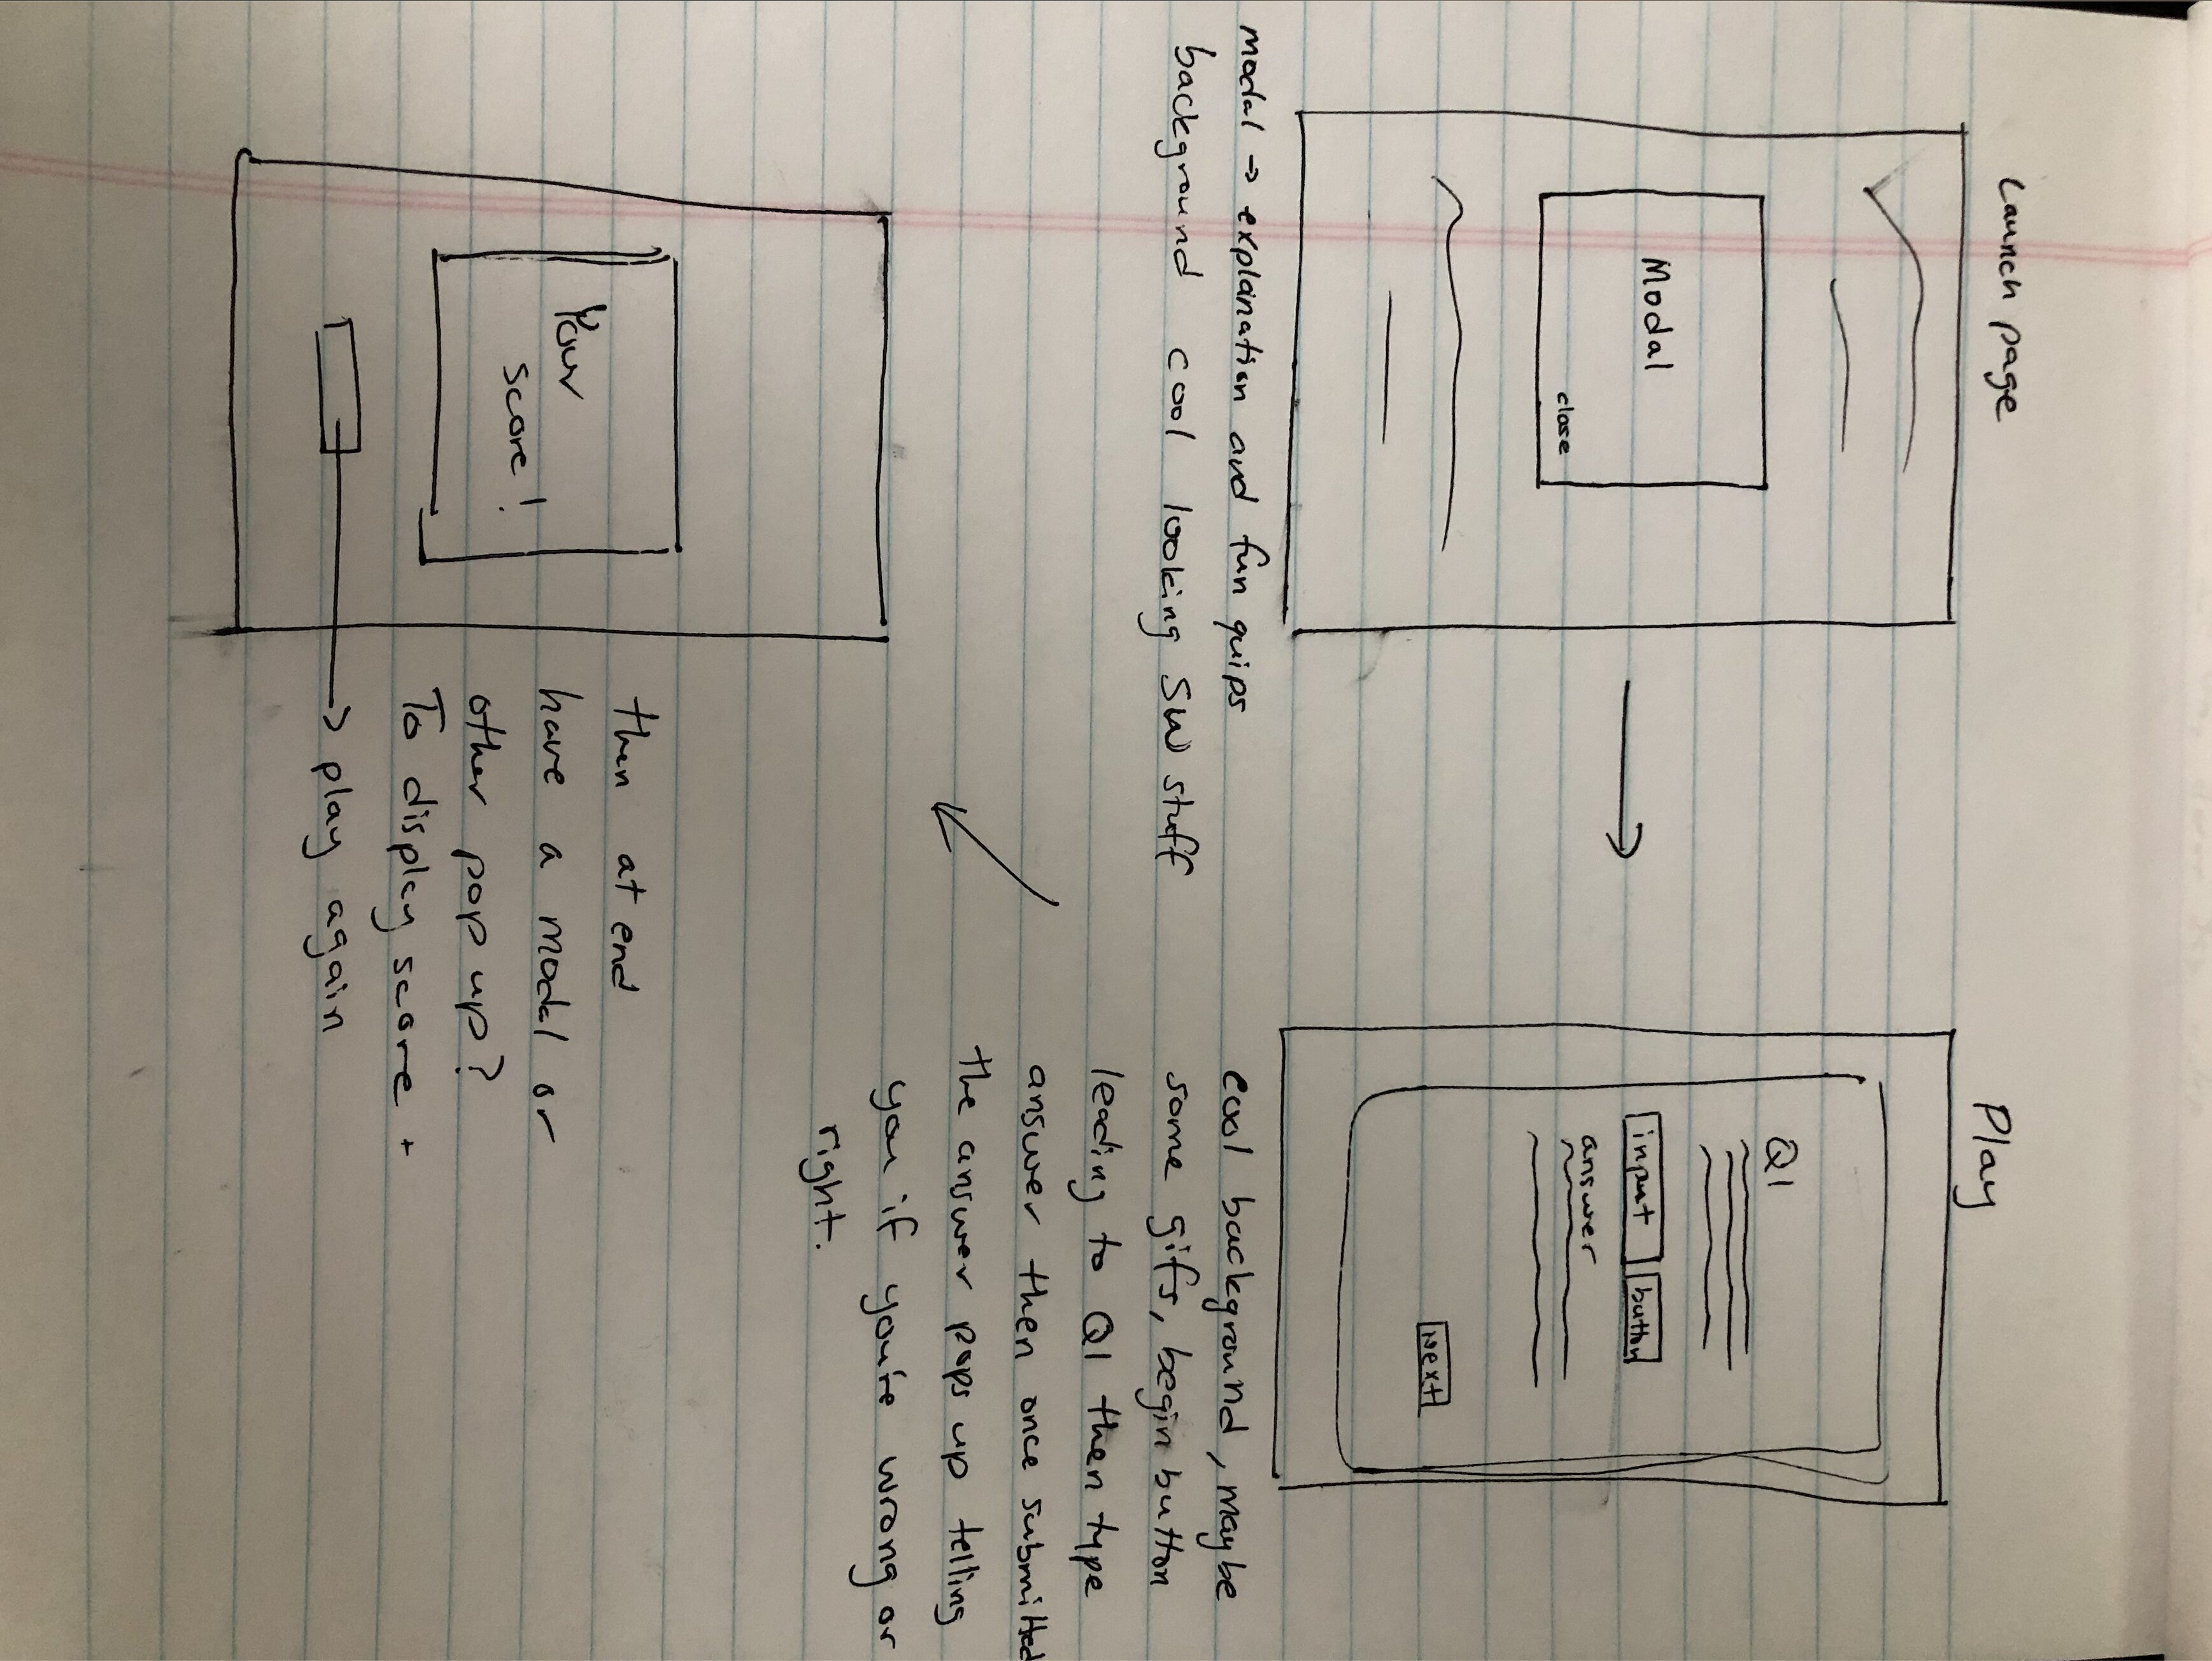 Launch page
Modal
close
modal → explanation and fun quips
background cool looking SW stuff
Play
Q1
input button
answer
Next
cool background, maybe
some gifs, begin button
leading to Q1 then type
answer then once submitted
the answer pops up telling
you if you're wrong or
right.
Your
score!
then at end
have a modal or
other pop up?
To display score +
play again